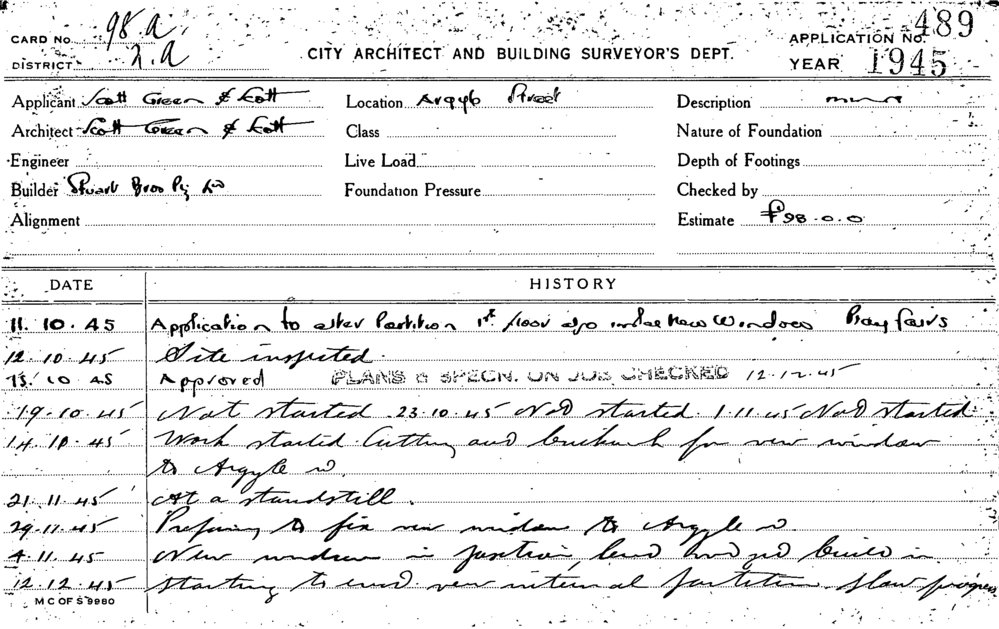 CARD No. 98.a.
DISTRICT 2.a
CITY ARCHITECT AND BUILDING SURVEYOR'S DEPT.
APPLICATION No. 489
YEAR 1945
Applicant Scott Green & Scott Location Argyle Street Description
Architect Scott Green & Scott Class Nature of Foundation
Engineer Live Load Depth of Footings
Builder Stuart Bros Pty Ld Foundation Pressure Checked by
Alignment Estimate £98.0.0
DATE HISTORY
11.10.45 Application to alter Partition 1st floor also New Windows Playfairs
12.10.45 Site inspected.
15.10.45 Approved PLANS & SPECN. ON JOB CHECKED 12.12.45
19.10.45 Not started 23.10.45 Not started 1.11.45 Not started
14.11.45 Work started Cutting away brickwork for new window
to Argyle
21.11.45 At a standstill.
29.11.45 Preparing to fix new window to Argyle
4.11.45 New window in position, build in
12.12.45 starting to erect new internal partition slow progress
M C OF S 9980